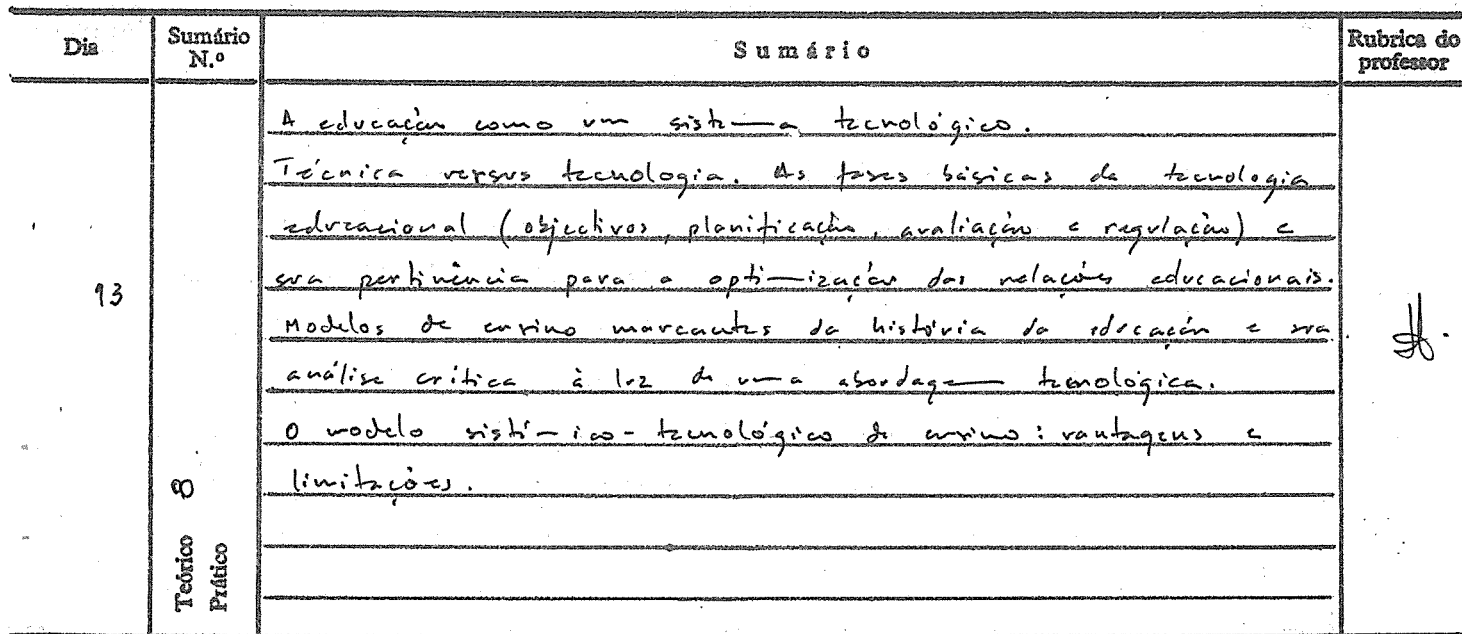 Dia
Sumário N.º
Sumário
Rubrica do professor
A educação como um sistema tecnológico.
Técnica versus tecnologia. As fases básicas da tecnologia
educacional (objectivos, planificação, avaliação e regulação) e
sua pertinência para a optimização das relações educacionais.
13
Modelos de ensino marcantes da história da educação e sua
análise crítica à luz de uma abordagem tecnológica.
O modelo sistémico-tecnológico de ensino: vantagens e
limitações.
8
Teórico
Prático